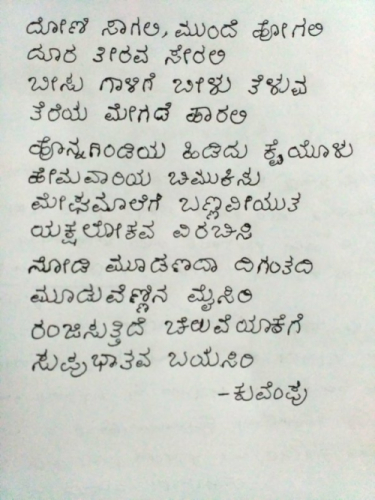 ದೋಣಿ ಸಾಗಲಿ, ಮುಂದೆ ಹೋಗಲಿ
ದೂರ ತೀರವ ಸೇರಲಿ
ಬೀಸು ಗಾಳಿಗೆ ಬೀಳು ತೆಳುವ
ತೆರೆಯ ಮೇಗಡೆ ಹಾರಲಿ
ಹೊನ್ನಗಿಂಡಿಯ ಹಿಡಿದು ಕೈಯೊಳು
ಹೇಮವಾರಿಯ ಚಿಮುಕಿಸು
ಮೇಘಮಾಲೆಗೆ ಬಣ್ಣವೀಯುತ
ಯಕ್ಷಲೋಕವ ವಿರಚಿಸಿ
ನೋಡಿ ಮೂಡಣದಾ ದಿಗಂತದಿ
ಮೂಡುವೆಣ್ಣಿನ ಮೈಸಿರಿ
ರಂಜಿಸುತ್ತಿದೆ ಚೆಲುವೆಯಾಕೆಗೆ
ಸುಪ್ರಭಾತವ ಬಯಸಿರಿ
-ಕುವೆಂಪು